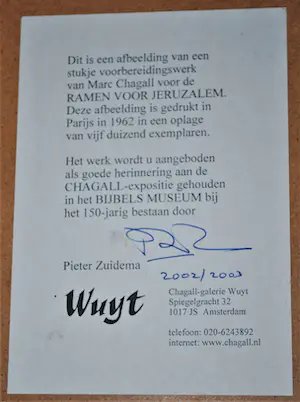 Dit is een afbeelding van een
stukje voorbereidingswerk
van Marc Chagall voor de
RAMEN VOOR JERUZALEM.
Deze afbeelding is gedrukt in
Parijs in 1962 in een oplage
van vijf duizend exemplaren.
Het werk wordt u aangeboden
als goede herinnering aan de
CHAGALL-expositie gehouden
in het BIJBELS MUSEUM bij
het 150-jarig bestaan door
Pieter Zuidema
2002/2003
Wuyt
Chagall-galerie Wuyt
Spiegelgracht 32
1017 JS Amsterdam
telefoon: 020-6243892
internet: www.chagall.nl